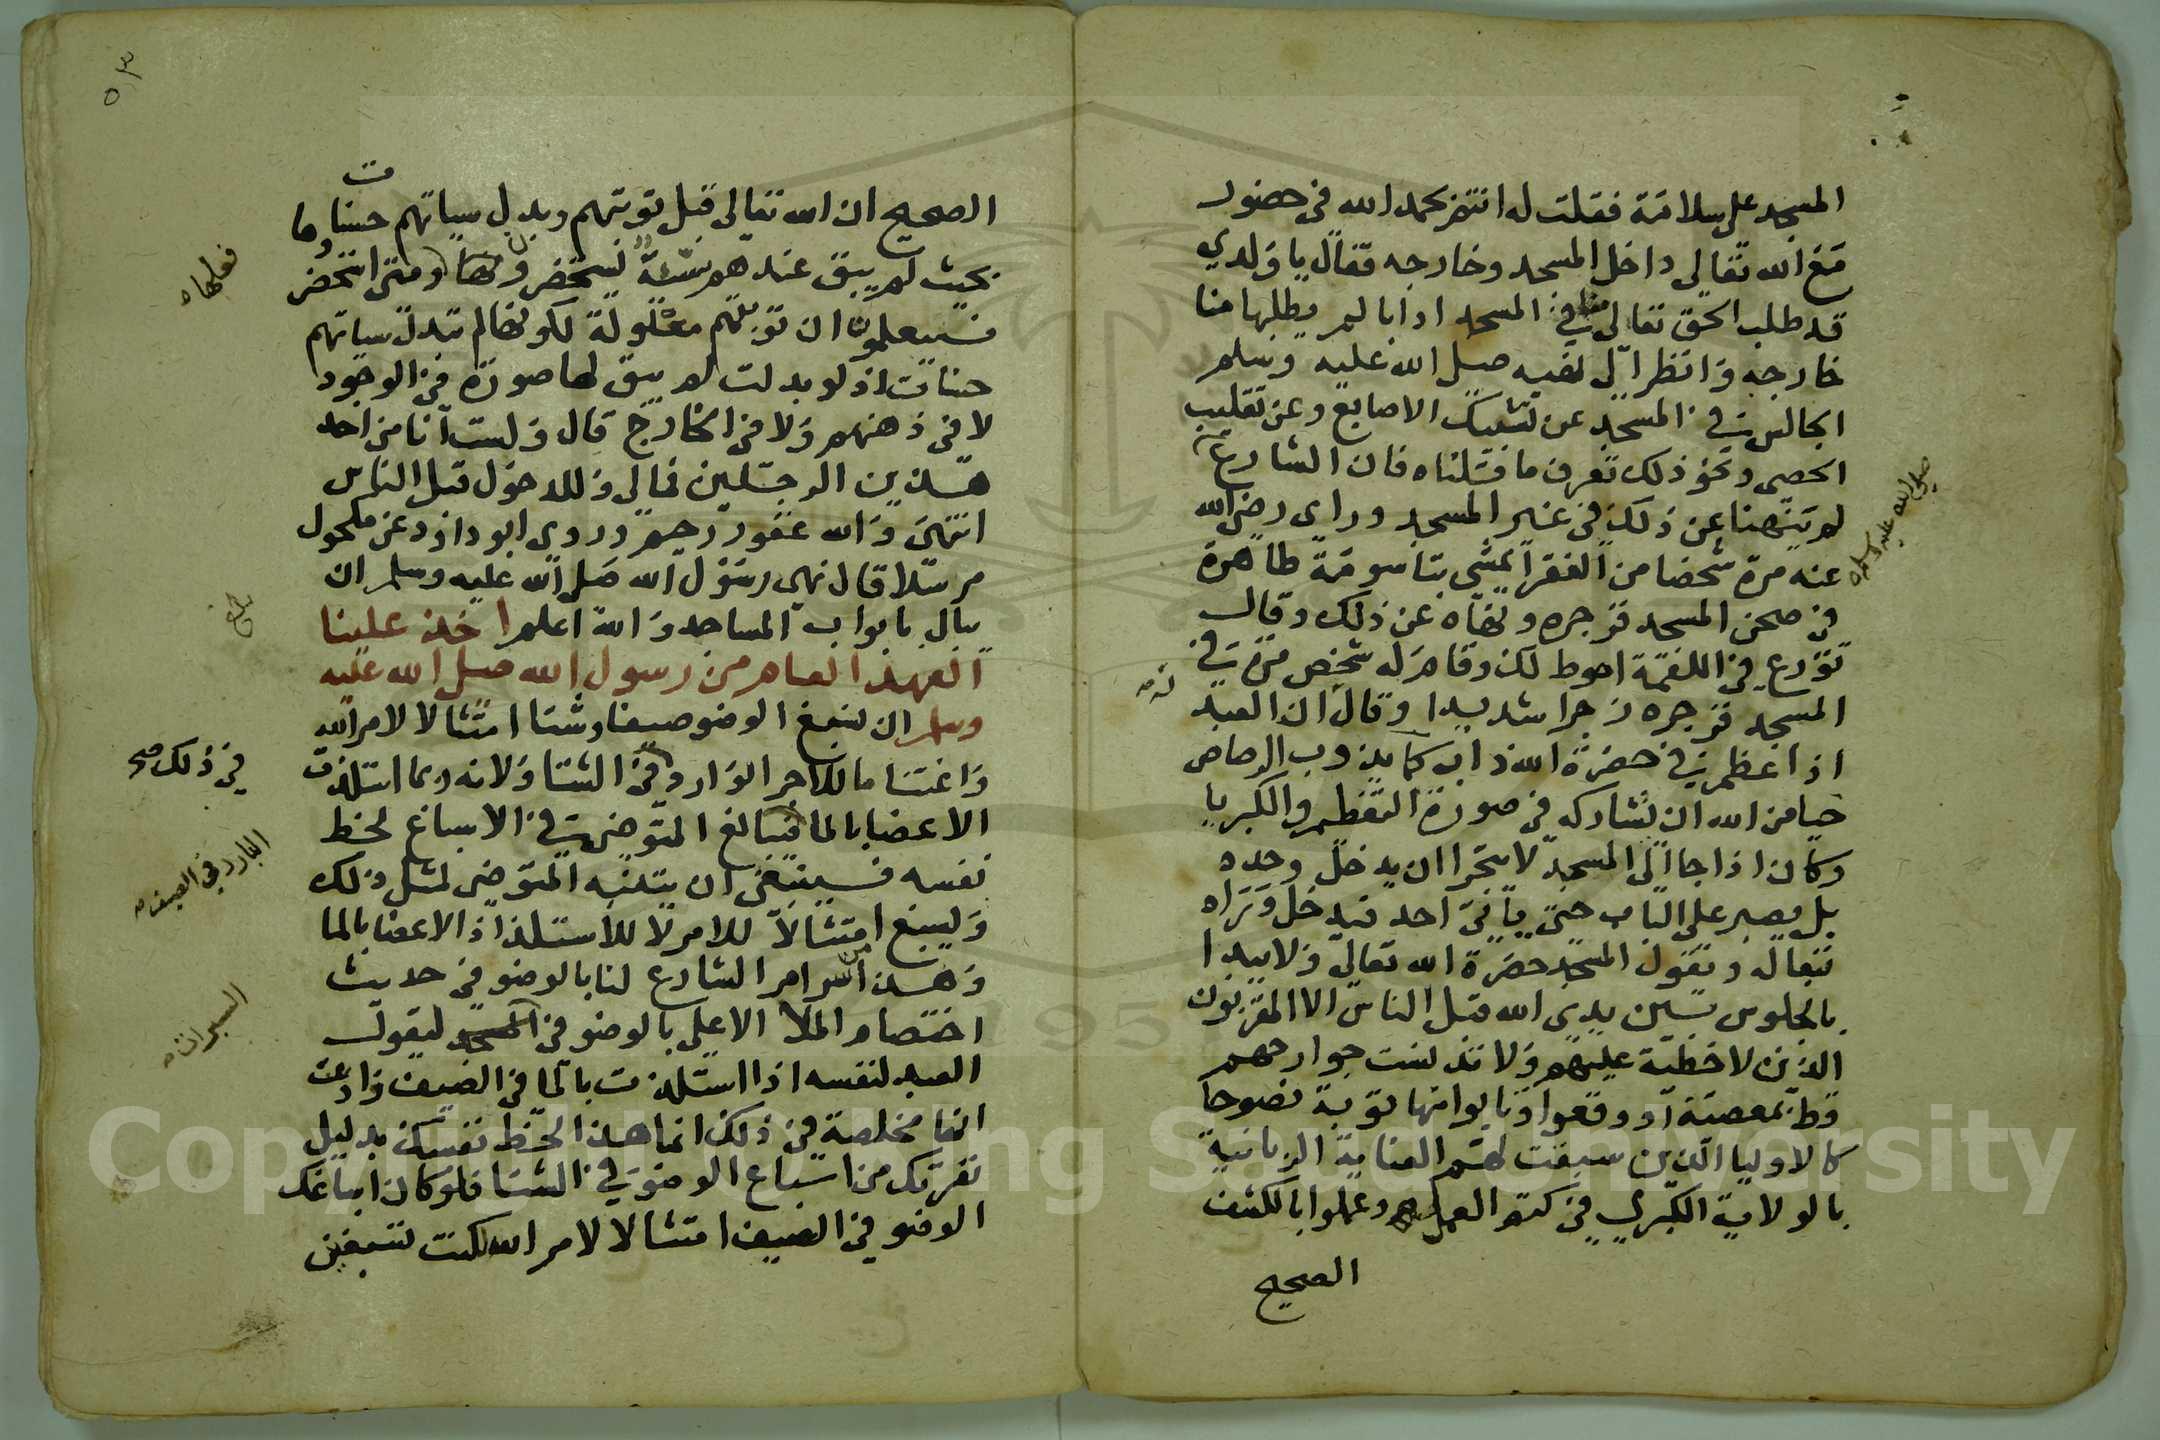 المسجد على سلامة فقلت له انتم بحمد الله في حضور
مع الله تعالى داخل المسجد وخارجه فقال يا ولدي
قد طلب الحق تعالى منا في المسجد ادابا لم يطلبها منا
خارجه وانظر الى نهيه صلى الله عليه وسلم
الجالس في المسجد عن تشبيك الاصابع وعن تقليب
الحصى ونحو ذلك تعرف ما قلناه فان الشارع
صلى الله عليه وسلم
لم ينهنا عن ذلك في غير المسجد وراى رضي الله
عنه مرة شخصا من الفقرا يمشي بتاسومة طاهرة
في صحن المسجد فزجره ونهاه عن ذلك وقال
تورع في اللقمة احوط لك وقام له شخص مرة في
المسجد فزجره زجرا شديدا وقال ان العبد
اذا عظم في حضرة الله ذاب كما يذوب الرصاص
حيا من الله ان يشاركه في صورة التعظيم والكبريا
وكان اذا جا الى المسجد لا يتجرا ان يدخل وحده
بل يصبر على الباب حتى ياتي احد فيدخل وتراه
تبعا له ويقول المسجد حضرة الله تعالى ولا يبدا
بالجلوس بين يدي الله قبل الناس الا المقربون
الذين لا خطية عليهم ولا تدنست جوارحهم
قط بمعصية او وقعوا وتابوا منها توبة نصوحا
كالاوليا الذين سبقت لهم العناية الربانية
بالولاية الكبرى في كتم العدم وعلموا بالكشف
الصحيح
٥٣
الصحيح ان الله تعالى قبل توبتهم وبدل سياتهم حسنات وما
فعلها
بحيث لم يبق عندهم سيئة يستحضرونها ومتى استحضر
فسيعلمون ان توبتهم معلولة لكونها لم تبدل سياتهم
حسنات اذ لو بدلت لم يبق لها صورة في الوجود
لا في ذهنهم ولا في الخارج قال ولست انا من احد
هذين الرجلين فمالي وللدخول قبل الناس
انتهى والله غفور رحيم وروى ابو داود عن مكحول
مرسلا قال نهى رسول الله صلى الله عليه وسلم ان
يبال بابواب المساجد والله اعلم اخذ علينا
العهد العام من رسول الله صلى الله عليه
وسلم ان نسبغ الوضو صيفا وشتا امتثالا لامر الله
واغتناما للاجر الوارد في الشتا ولانه ربما استلذت
في ذلك صح
الاعضا بالما فيبالغ المتوضي في الاسباغ لحظ
البارد في الصيف
نفسه فينبغي ان يتنبه المتوضي لمثل ذلك
ويسبغ امتثالا للامر لا للاستلذاذ الاعضا بالما
وهذا من اسرار امر الشارع لنا بالوضو في حديث
اختصام الملا الاعلى بالوضو في ليقول
السبرات
العبد لنفسه اذا استلذت بالما في الصيف وادعت
انها مخلصة في ذلك انما هذا لحظ نفسك بدليل
نفرتك من اسباغ الوضو في الشتا فلو كان اسباغك
الوضو في الصيف امتثالا لامر الله لكنت تسبغين